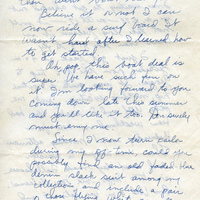 Believe it or not I can
now ride a surf board. It
wasn't hard after I learned how
to get started.
Oh pop, this boat deal is
super. We have such fun on
it. I'm looking forward to you
coming down late this summer
and you'll like it too. I'm surely
must enjoy me.
Since I now turn sailor
during my off time, could you
possibly find an old faded blue
denim slack suit among my
collection and include a pair
of those